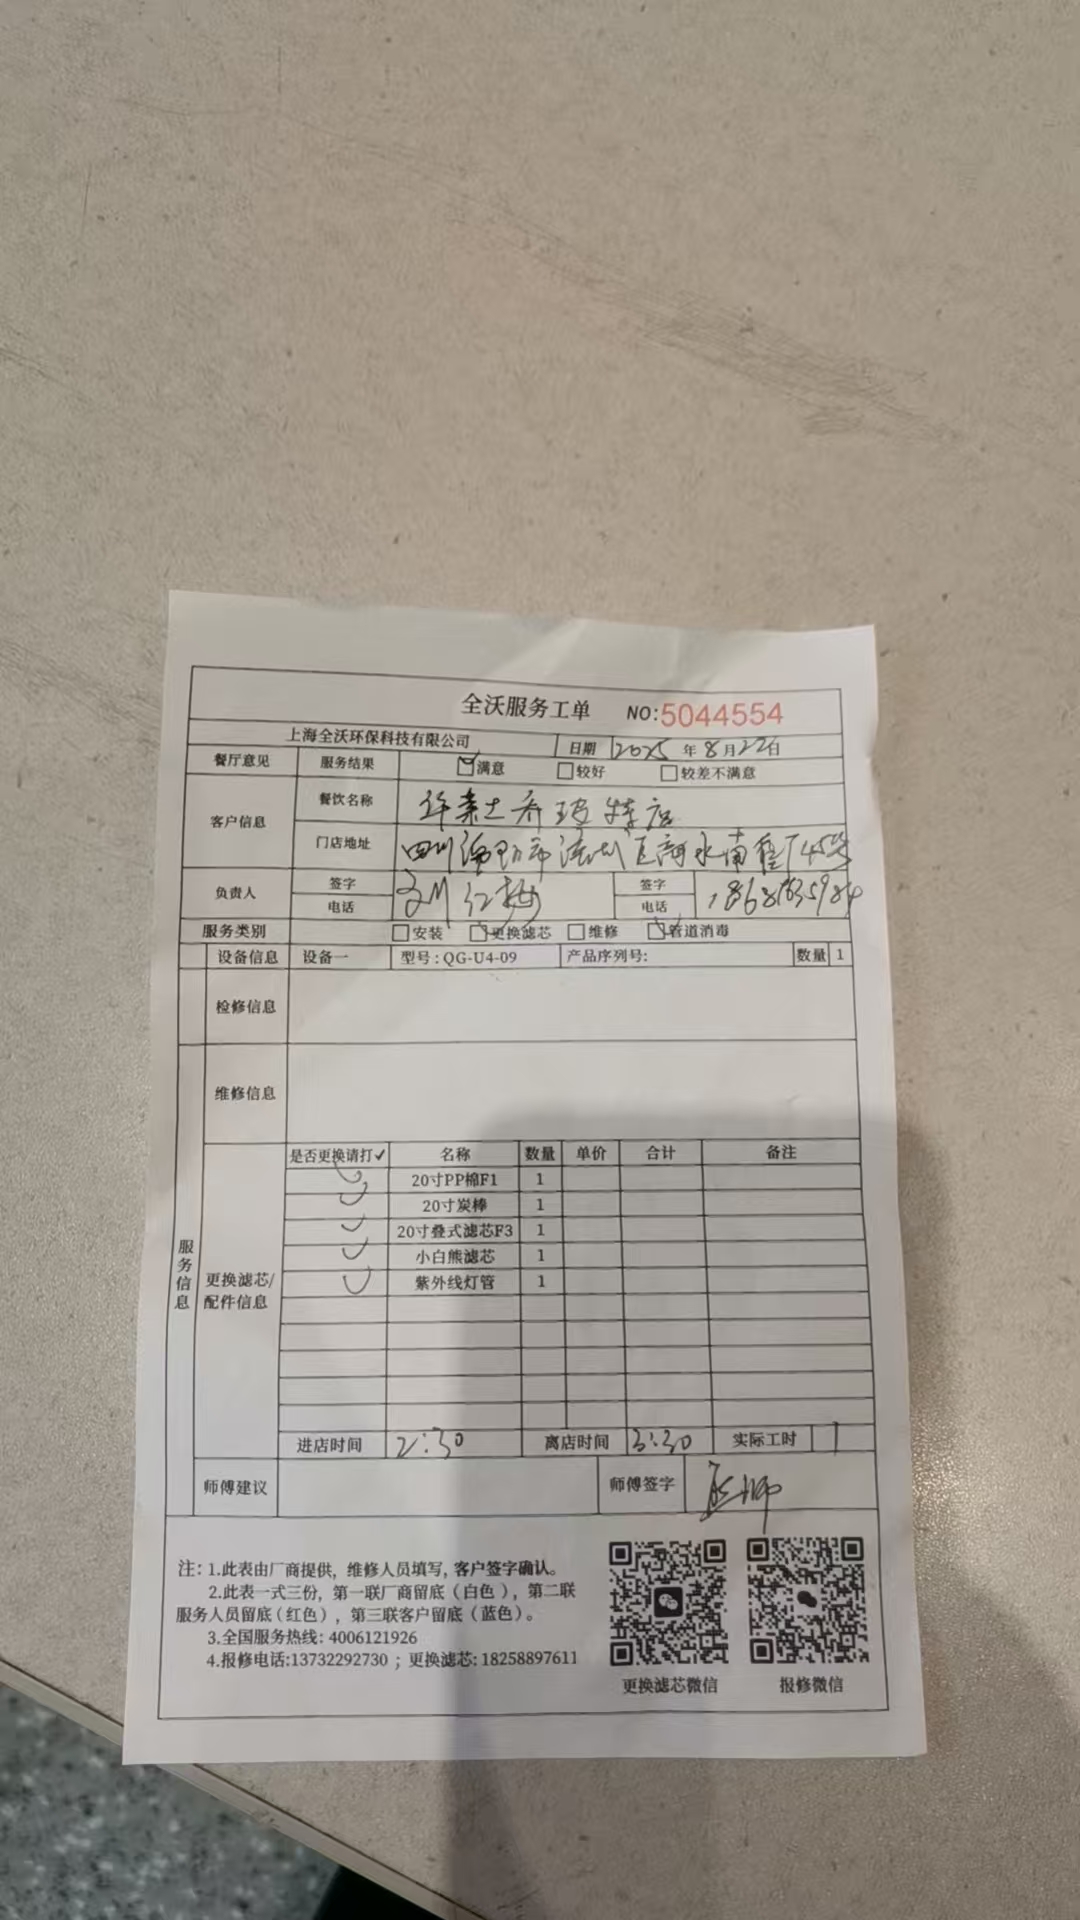 全沃服务工单 NO:5044554
上海全沃环保科技有限公司 日期 2025 年 8 月 22 日
餐厅意见 服务结果 满意 较好 较差不满意
客户信息 餐饮名称 华莱士
门店地址 四川 市 区
负责人 签字 红梅 签字
电话 电话
服务类别 安装 更换滤芯 维修 管道消毒
设备信息 设备一 型号:QG-U4-09 产品序列号: 数量 1
检修信息
维修信息
服务信息
更换滤芯/配件信息
是否更换请打✓ 名称 数量 单价 合计 备注
✓ 20寸PP棉F1 1
✓ 20寸炭棒 1
✓ 20寸叠式滤芯F3 1
✓ 小白熊滤芯 1
✓ 紫外线灯管 1
进店时间 2:30 离店时间 3:30 实际工时 1
师傅建议 师傅签字
注: 1.此表由厂商提供，维修人员填写, 客户签字确认。
2.此表一式三份，第一联厂商留底（白色），第二联
服务人员留底（红色），第三联客户留底（蓝色）。
3.全国服务热线: 4006121926
4.报修电话:13732292730 ；更换滤芯: 18258897611
更换滤芯微信 报修微信